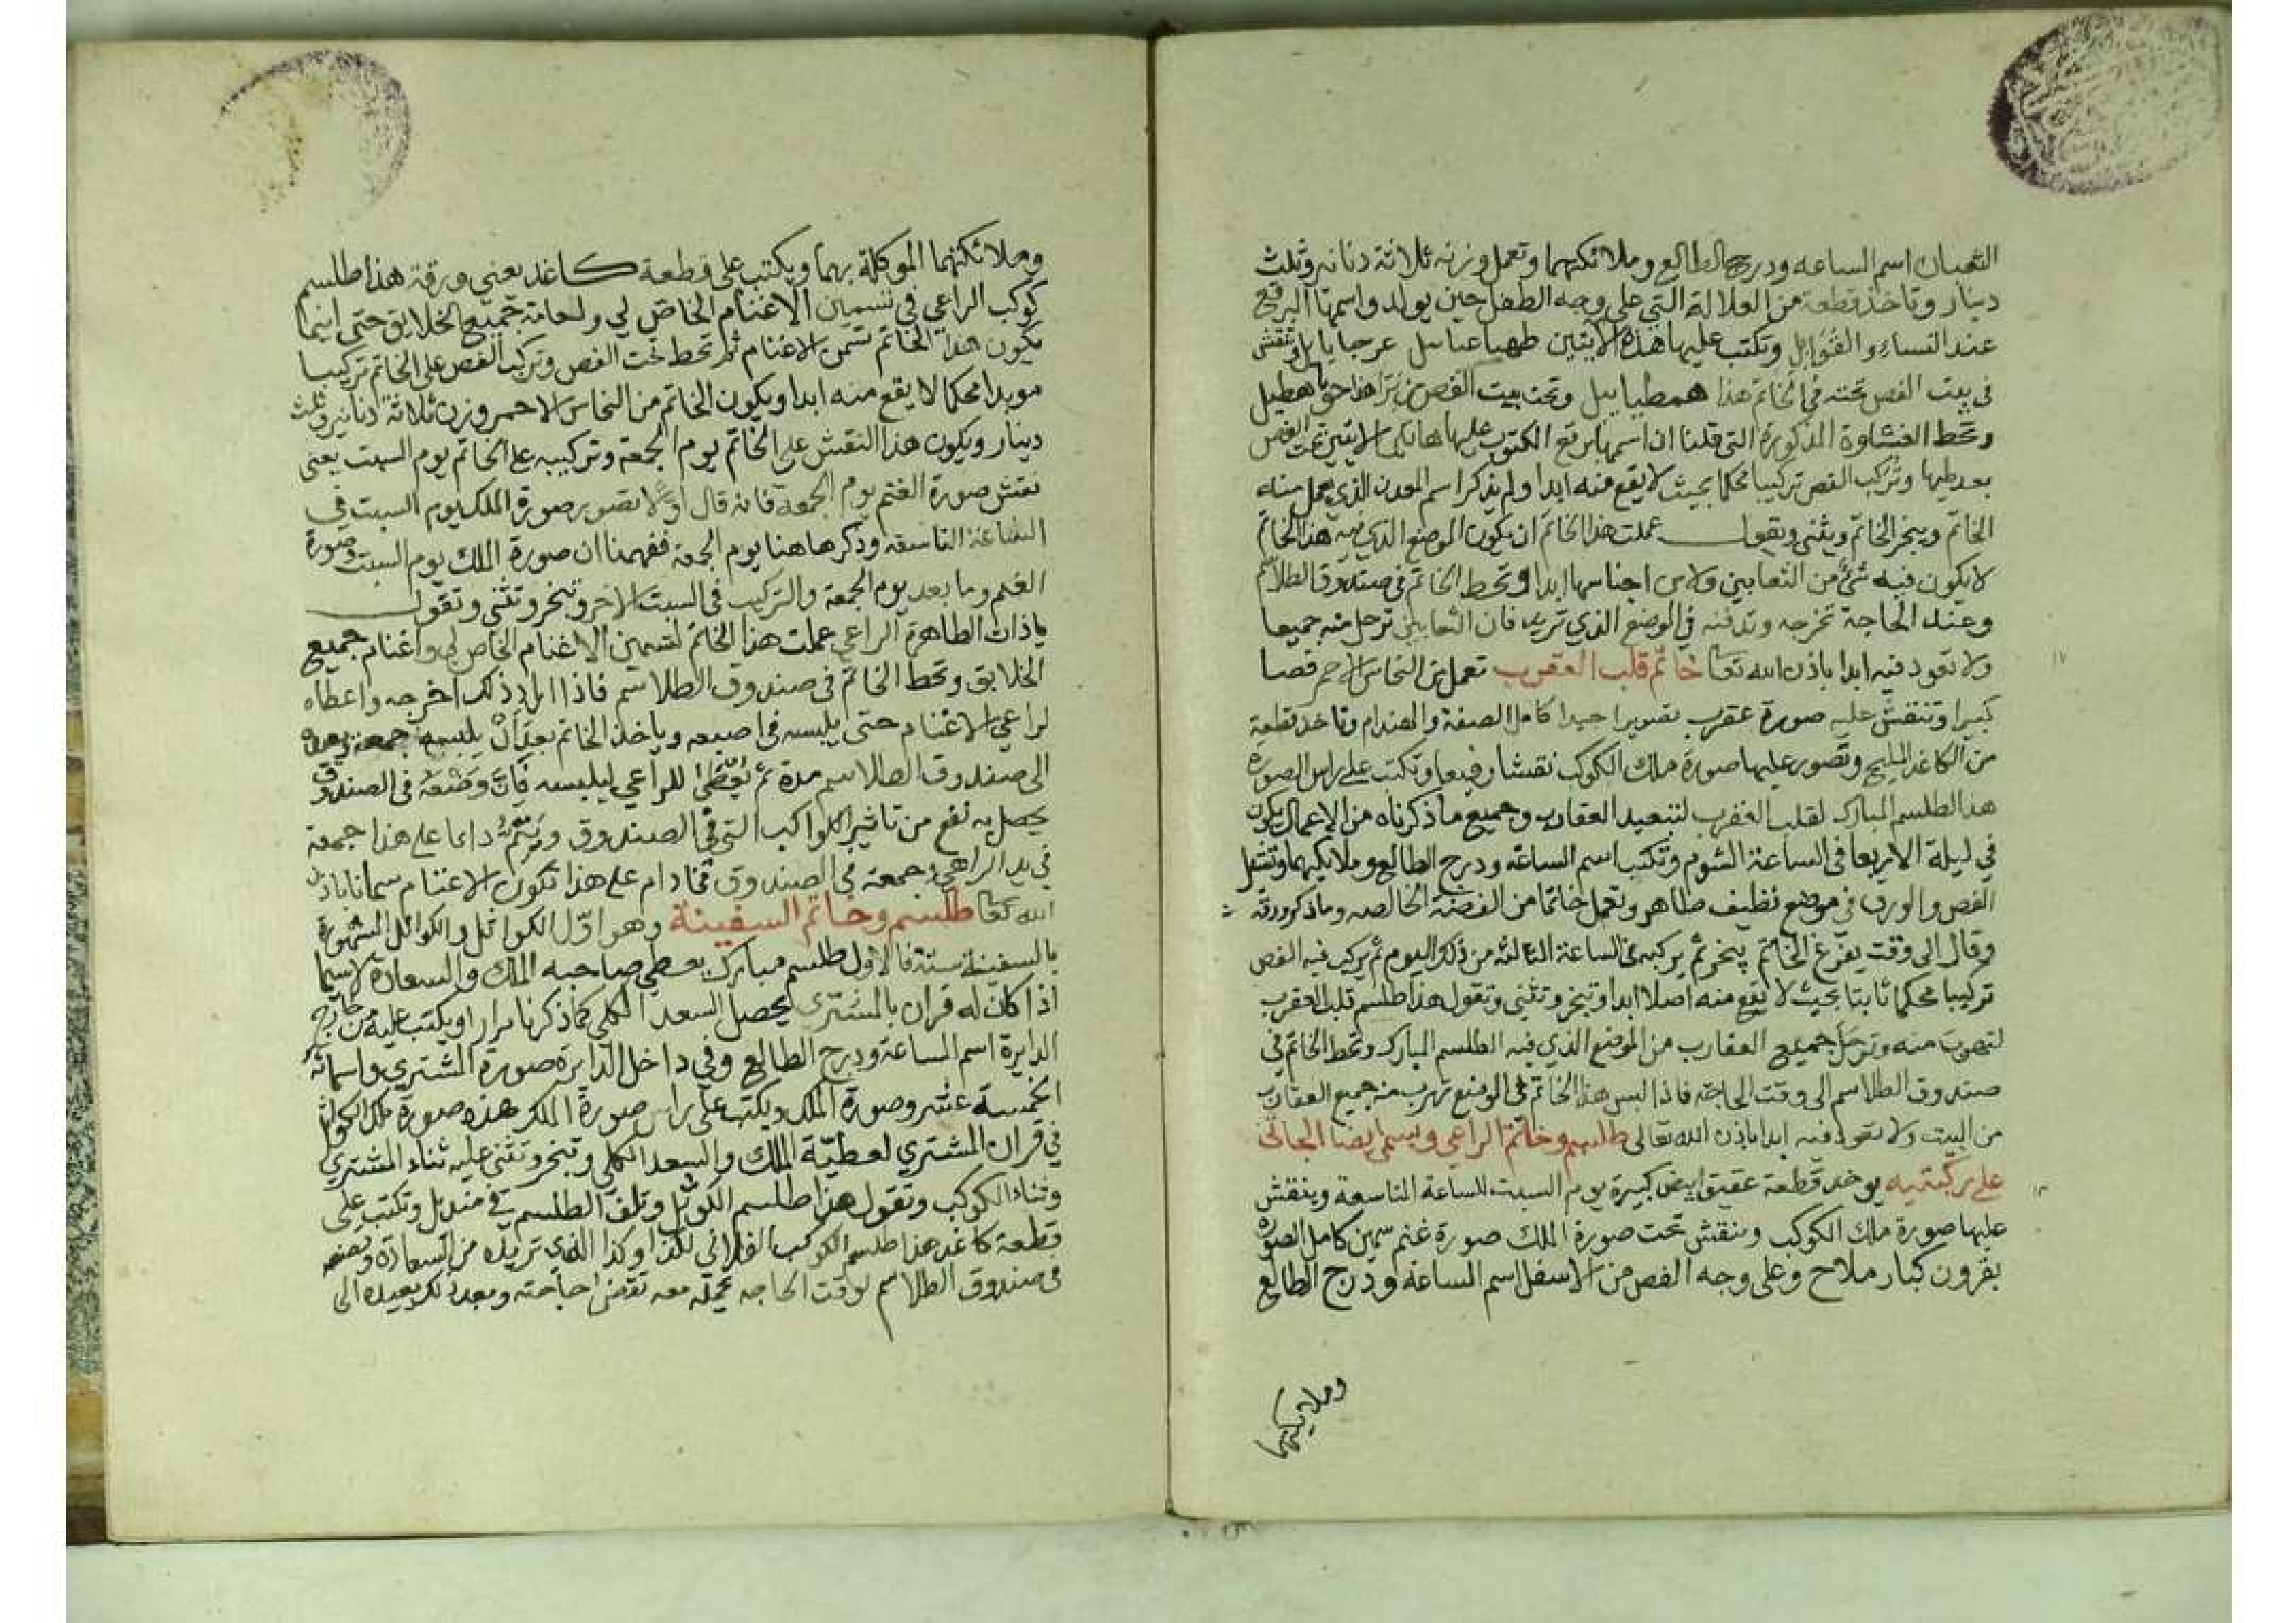 الثعبان اسم الساعه ودرج الطالع وملائكتهما وتعمل وزنه ثلاثة دنانير وثلث
دينار وتاخذ قطعة من الغلالة التي على وجه الطفل حين يولد واسمها البرقع
عند النساء والقوابل وتكتب عليها هذه الاثنين طهياعيائيل عرجيايايل وتنقش
في بيت الفص تحته في الخاتم هذا همطيائيل وتحت بيت الفص
وتحط الغشاوة المذكورة التي قلنا ان اسمها برقع المكتوب عليها الاثنين تحت الفص
بعد طيها وتركب الفص تركيبا محكما بحيث لا يقع منه ابدا ولم يذكر اسم المعدن الذي يعمل منه
الخاتم ويبخر الخاتم ويثني ويقول عملت هذا الخاتم ان يكون الموضع الذي فيه هذا الخاتم
لا يكون فيه شئ من الثعابين ولا من اجناسها ابدا وتحط الخاتم في صندوق الطلاسم
وعند الحاجة تخرجه وتدفنه في الموضع الذي تريد فان الثعابين ترحل منه جميعا
ولا تعود فيه ابدا باذن الله تعا خاتم قلب العقرب تعمل من النحاس الاحمر فصا
كبيرا وتنقش عليه صورة عقرب تصويرا جيدا كامل الصفة والهندام وتاخذ قطعة
من الكاغد المليح وتصور عليها صورة ملك الكوكب نقشا رفيعا وتكتب على راس الصورة
هذا الطلسم المبارك لقلب العقرب لتبعيد العقارب وجميع ما ذكرناه من الاعمال يكون
في ليلة الاربعا في الساعة الشوم وتكتب اسم الساعه ودرج الطالع وملايكتهما وتشيل
الفص والورق في موضع نظيف طاهر وتعمل خاتما من الفضة الخالصه وما ذكر وزنه
وقال الى وقت يفرغ الخاتم يبخر ثم يركبه في الساعة الثالثة من ذلك اليوم ثم يركب فيه الفص
تركيبا محكما ثابتا بحيث لا يقع منه اصلا ابدا وتبخر وتثني وتقول هذا طلسم قلب العقرب
لتهرب منه وترحل جميع العقارب من الموضع الذي فيه الطلسم المبارك وتحط الخاتم في
صندوق الطلاسم الى وقت الحاجه فاذا لبس هذا الخاتم في الموضع تهرب منه جميع العقارب
من البيت ولا تعود فيه ابدا باذن الله تعالى طلسم وخاتم الراعي ويسمى ايضا الجاثي
على ركبتيه يوخذ قطعة عقيق ابيض كبيرة يوم السبت الساعة التاسعة وينقش
عليها صورة ملك الكوكب وينقش تحت صورة الملك صورة غنم سمين كامل الصورة
بقرون كبار ملاح وعلى وجه الفص من الاسفل اسم الساعة ودرج الطالع
وملايكتهما
وملائكتهما الموكلة بهما ويكتب على قطعة كاغد يعني ورقة هذا طلسم
كوكب الراعي في تسمين الاغنام الخاص لي ولعامة جميع الخلايق حتى اينما
يكون هذا الخاتم تسمن الاغنام ثم تحط تحت الفص وتركب الفص على الخاتم تركيبا
موبدا محكما لا يقع منه ابدا ويكون الخاتم من النحاس الاحمر وزن ثلاثة دنانير وثلث
دينار ويكون هذا النقش على الخاتم يوم الجمعة وتركيبه على الخاتم يوم السبت يعني
نقش صورة الغنم يوم الجمعة فانه قال اولا تصوير صورة الملك يوم السبت في
الساعة التاسعه وذكرها هنا يوم الجمعة ففهمنا ان صورة الملك يوم السبت وصورة
الغنم وما بعد يوم الجمعة والتركيب في السبت الاخر وتبخر وتثني وتقول
ياذات الطاهرة الراعي عملت هذا الخاتم لتسمين الاغنام الخاص لي واغنام جميع
الخلايق وتحط الخاتم في صندوق الطلاسم فاذا اراد ذلك اخرجه واعطاه
لراعي الاغنام حتى يلبسه في اصبعه وياخذ الخاتم بعد ان يلبسه جمعة ويعيده
الى صندوق الطلاسم مدة ثم يعطى للراعي ليلبسه فان وضعه في الصندوق
يحصل به نفع من تاثير الكواكب التي في الصندوق وتستمر دايما على هذا جمعة
في يد الراعي وجمعة في الصندوق فما دام على هذا تكون الاغنام سمانا باذن
الله تعا طلسم وخاتم السفينة وهو اول الكواثل والكواثل المشهورة
بالسفينة ستة فالاول طلسم مبارك يعطي صاحبه الملك والسعادة لاسيما
اذا كان له قران بالمشتري ليحصل السعد الكلي كما ذكرنا مرارا ويكتب عليه من خارج
الدايرة اسم الساعة ودرج الطالع وفي داخل الدايرة صورة المشتري واسمائه
الخمسة عشر وصورة الملك ويكتب على راس صورة الملك هذه صورة ملك الكوثل
في قران المشتري لعطية الملك والسعد الكلي وتبخر وتثني عليه ثناء المشتري
وثناء الكوكب وتقول هذا طلسم الكوثل وتلف الطلسم في منديل وتكتب على
قطعة كاغد هذا طلسم الكوكب الفلاني لكذا وكذا الذي تريده من السعادة وتضعه
في صندوق الطلاسم لوقت الحاجه تحمله معه تقضى حاجته وبعد ذلك يعيده الى